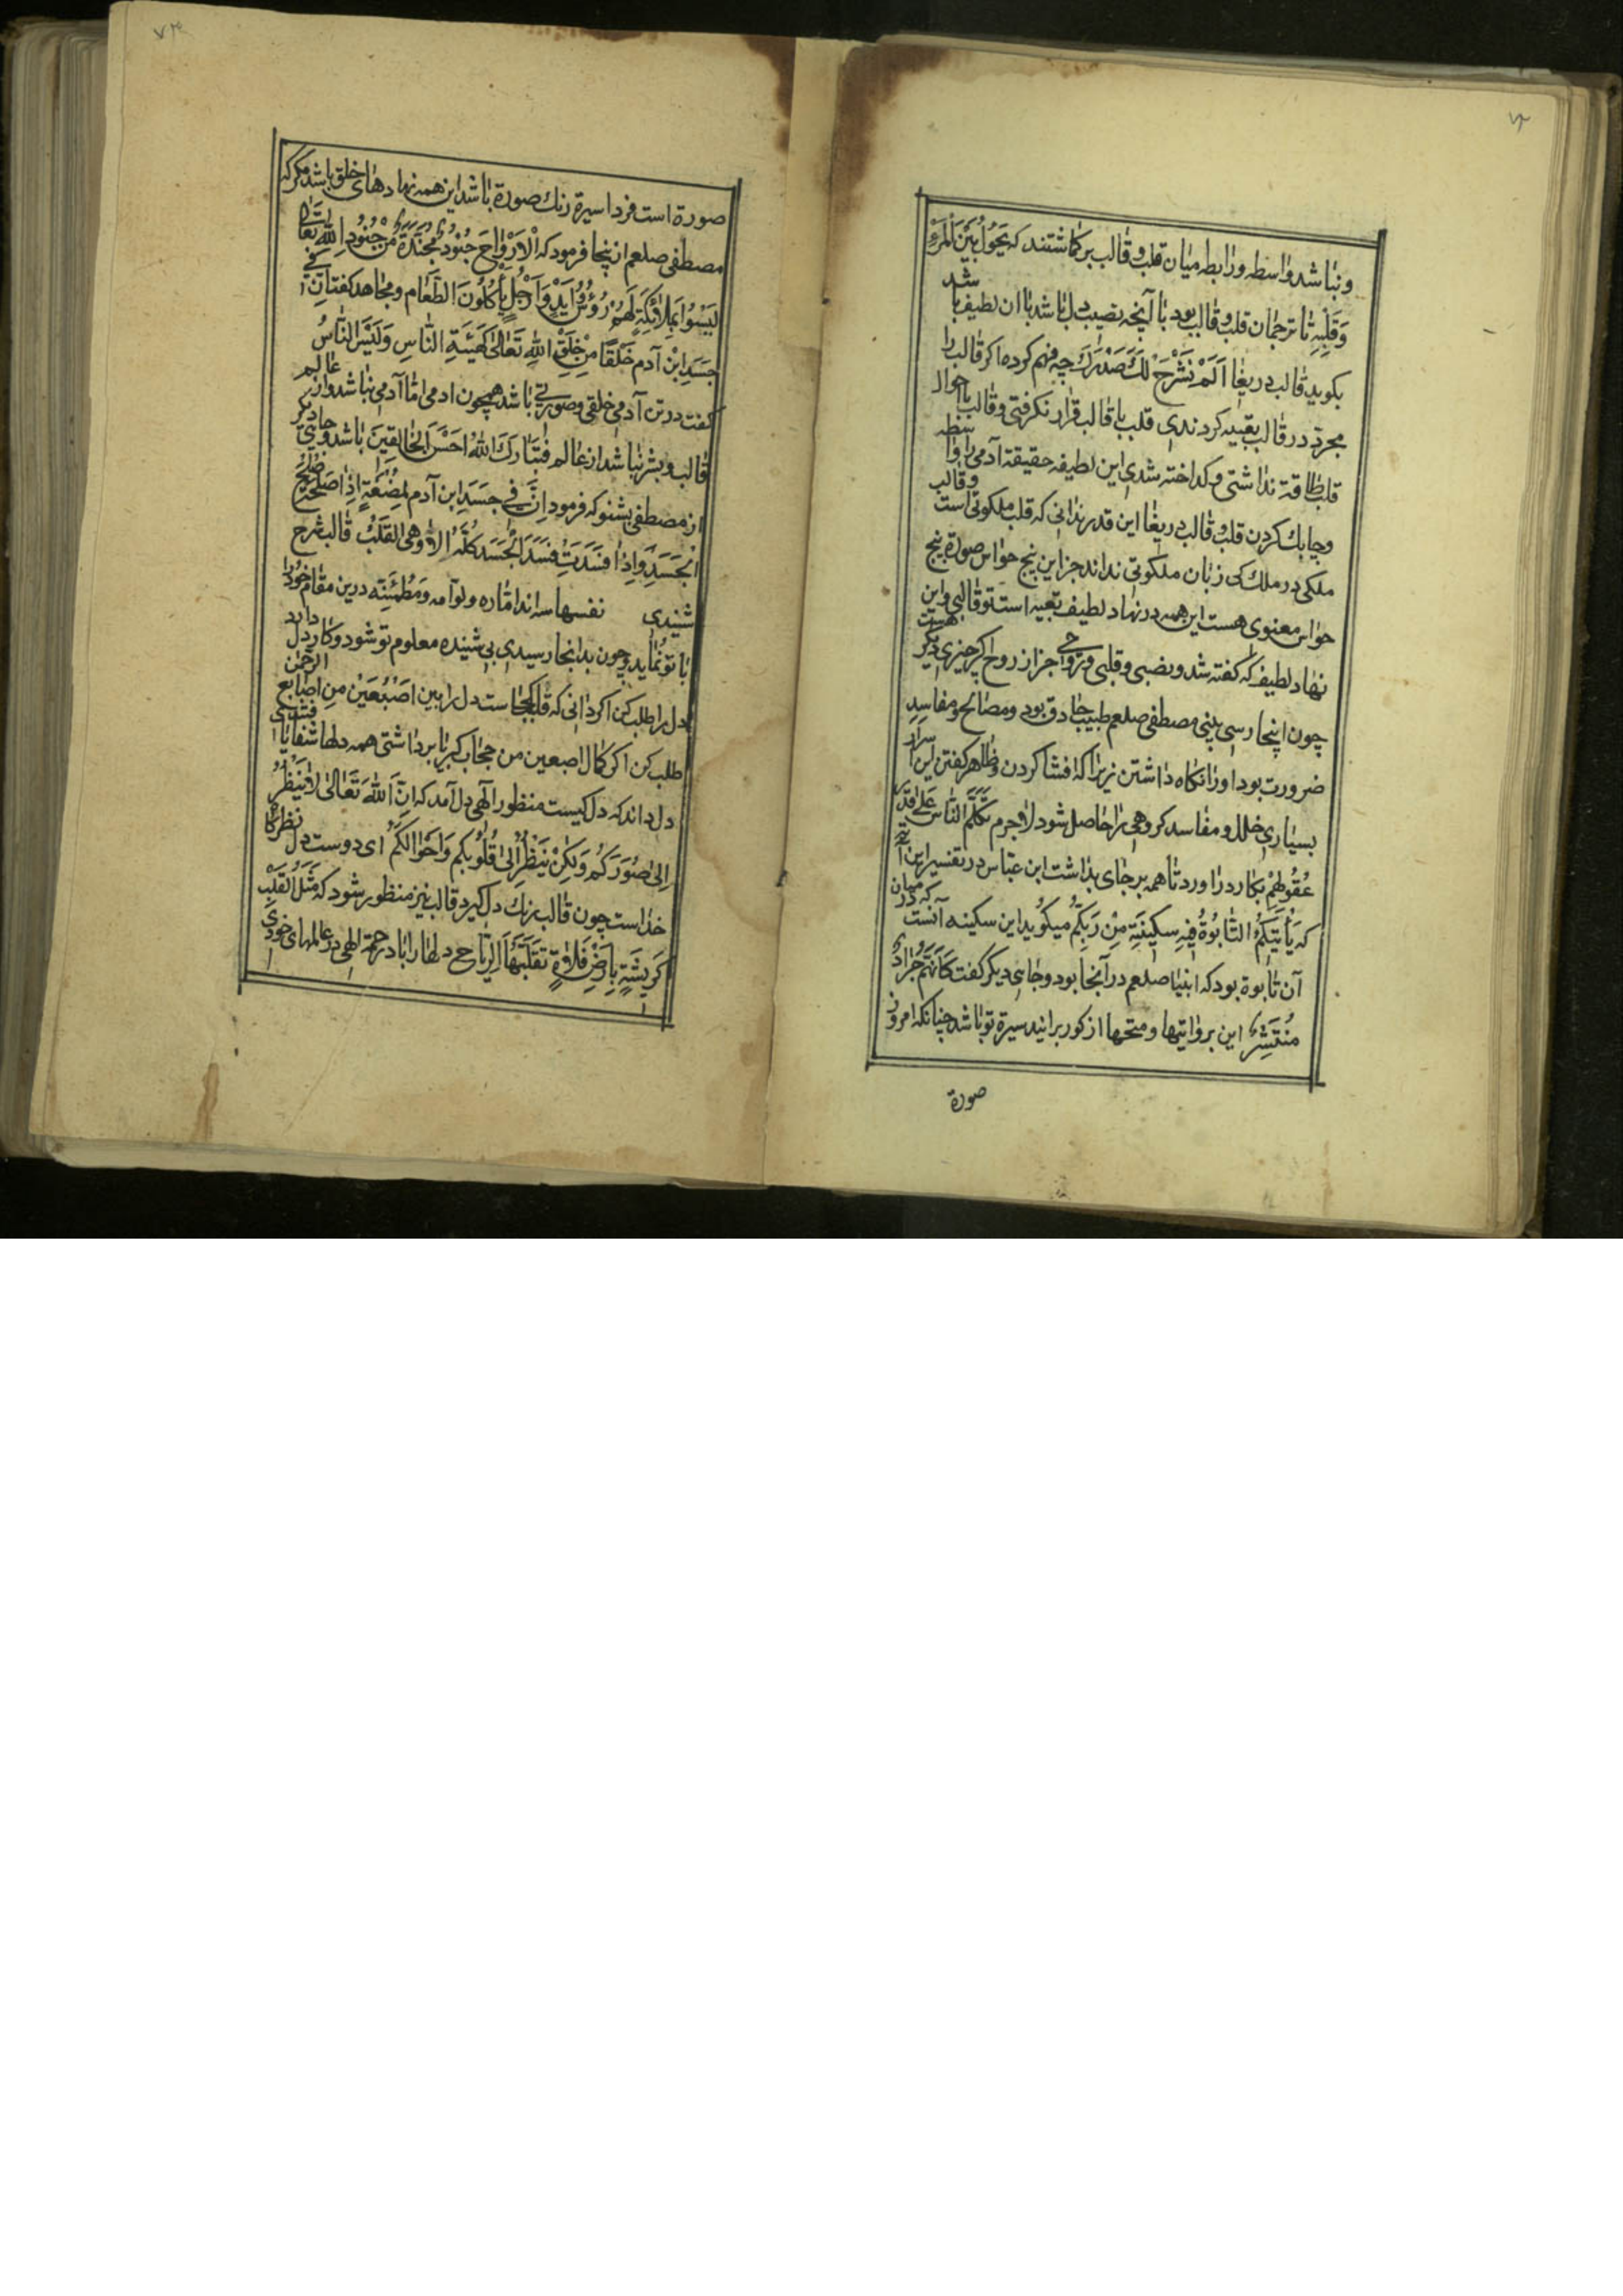 ۷۳
ونباشد واسطه ورابطه میان قلب وقالب بر کماشتند که یَحُوُلُ بَیْنَ الْمَرْءِ
وَقَلْبِهِ تا ترجمان قلب وقالب بود تا آنچه نصیب دل باشد با ان لطیف باشد
بکوید قالب دریغا اَلَمْ نَشْرَحْ لَكَ صَدْرَكَ چه فهم کرده اکر قالب را
مجرد در قالب تعبیه کردندی قلب با قالب قرار نکرفتی وقالب باحوال
قلب طاقة نداشتی و کداخته شدی این لطیفه حقیقة آدمی را واسطه
وحابك کردن قلب وقالب دریغا این قدر ندانی که قلب ملکوتی است وقالب
ملکی در ملك کی زبان ملکوتی نداند جز این پنج حواس صورة پنج
حواس معنوی هست این همه در نهاد لطیف تعبیه است تو قالبی واین
نهاد لطیف که کفته شد ونصبی وقلبی وروحی جز از روح اکر چیزی دیکر هست
چون اینجا رسی بینی مصطفی صلعم طبیب حاذق بود ومصالح ومفاسد
ضرورت بود اورا نکاه داشتن زیرا که افشا کردن وظاهر کفتن این اسرار
بسیاری خلل ومفاسد کروهی را حاصل شود لاجرم تَکَلَّمَ النَّاسَ عَلیٰ قَدْرِ
عُقُولِهِمْ بکار در اورد تا همه بر جای بداشت ابن عباس در تفسیر این آیه
که یَأْتِیَکُمُ التَّابُوةُ فِیهِ سَکِینَةٌ مِنْ رَبِّکُمْ میکوید این سکینه آنست که در میان
آن تابوة بود که انبیا صلعم در آنجا بود وجایی دیکر کفت کَاَنَّهُمْ جَرَادٌ
مُنْتَشِرٌ این بر وانیتها ومتحها از کور برایند سیرة تو باشد چنانکه امروز
صورة
۷۴
صورة است فردا سیرة رنك صورة باشد این همه نهادهای خلق باشد مکر که
مصطفی صلعم از ینجا فرمود که اَلْاَرْوَاحَ جُنُودٌ مُجَنَّدَةٌ مِنْ جُنُودِ اللّٰهِ تَعَالیٰ
لَیْسُوا بِمَلَائِکَةٍ لَهُمْ رُؤُسٌ وَاَیْدٍ وَاَرْجُلٍ یَأْکُلُونَ الطَّعَام ومجاهد کفت اِنَّ فِي
جَسَدِ ابْنِ آدم خَلْقًا مِنْ خَلْقِ اللّٰهِ تَعَالیٰ کَهَیْئَةِ النَّاسِ وَلَیْسَ النَّاسُ
کفت در تن آدمی خلقی وصورتی باشد همچون ادمی اما آدمی نباشد واز عالم
قالب وبشر نباشد از عالم فَتَبَارَكَ اللّٰهُ اَحْسَنُ الْخَالِقِینَ باشد وجایی دیکر
از مصطفی بشنو که فرمود اِنَّ فِي جَسَدِ ابن آدم لَمُضْغَةٍ اِذَا صَلُحَتْ صَلُحَ
الْجَسَدُ وَاِذَا فَسَدَتْ فَسَدَ الْجَسَدُ کُلُّهُ اَلَا وَهِيَ القَلْبُ قالب شرح
شنیدی نفسها سه اند امّاره ولوّامه ومُطْمَئِنّه درین مقام خود را
با تو نماید وچون بدانجا رسیدی بی شنیده معلوم تو شود وکار دل دارد
دل را طلب کن اکر دانی که قلب کجاست دل را بین اَصْبُعَیْنِ مِنِ اصَابع الرحمن
طلب کن اکر کمال اصبعین من حجاب کبریا برداشتی همه دلها شفا یافتندی
دل داند که دل کیست منظور الٰهی دل آمد که اِنَّ اَللّٰهَ تَعَالیٰ لَا یَنْظُرُ
اِلیٰ صُوَرَکُمْ وَلَکِنْ یَنْظُرُ اِلیٰ قُلُوْبِکُم وَاَحْوَالَکُمْ ای دوست دل نظر کا
خداست چون قالب رنك دل کیرد قالب نیز منظور شود که مَثَلُ الْقَلْبِ
کَرِیشَةٍ بِاَرْضٍ فَلَاةٍ تَقَلَّبَهَا الرِّیَاح دلها را باد رحمة الٰهی در عالمهای خودی